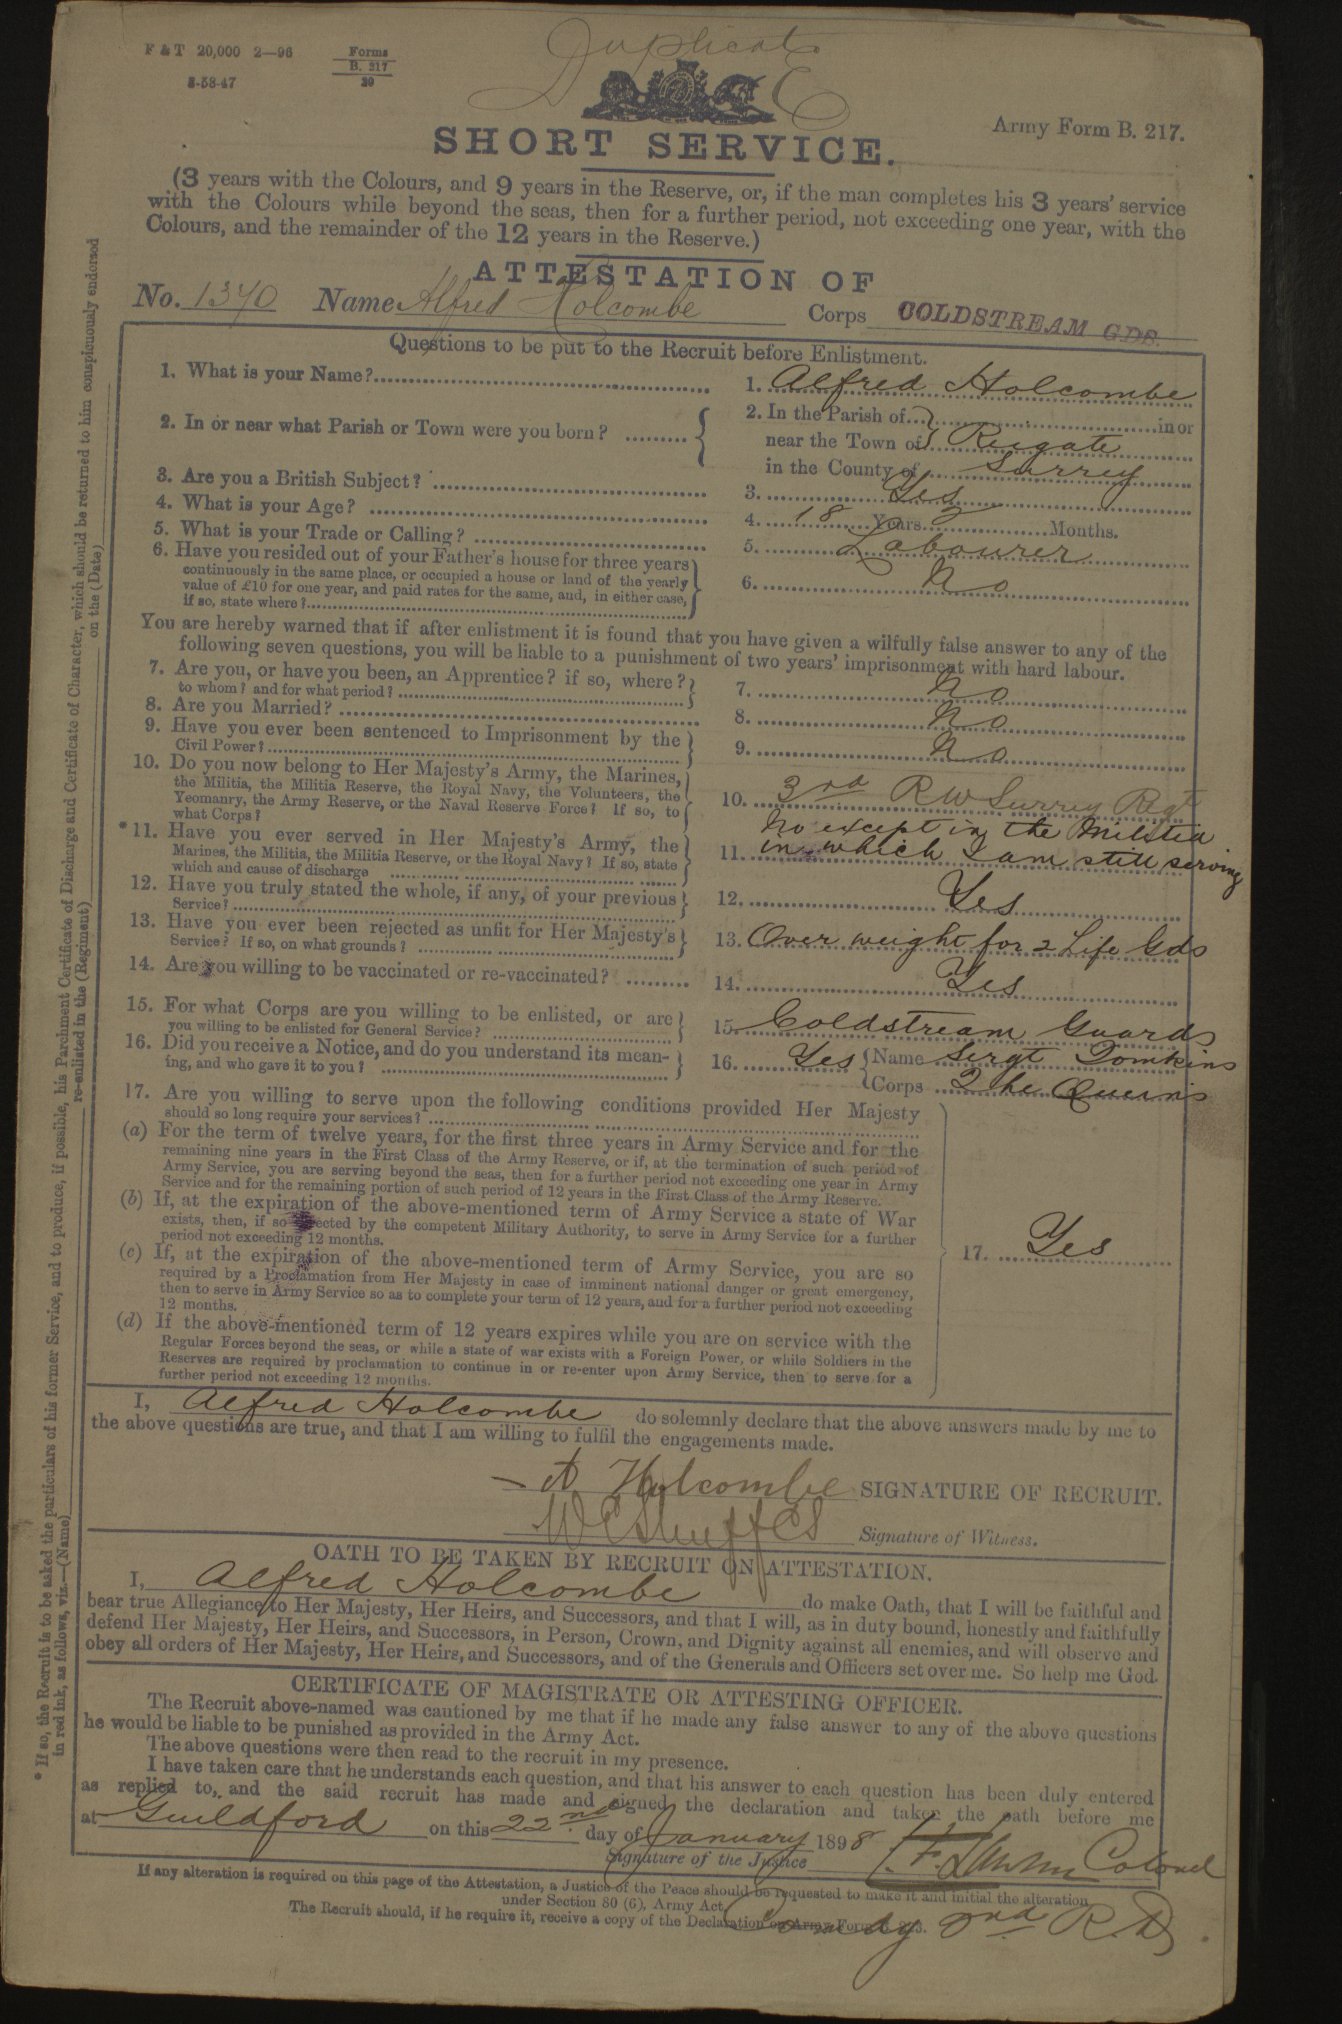 F & T 20,000 2—96 Forms B. 217 29
8-38-47
Duplicate
Army Form B. 217.
SHORT SERVICE.
(3 years with the Colours, and 9 years in the Reserve, or, if the man completes his 3 years' service
with the Colours while beyond the seas, then for a further period, not exceeding one year, with the
Colours, and the remainder of the 12 years in the Reserve.)
ATTESTATION OF
No. 1370 Name Alfred Holcombe Corps COLDSTREAM GDS.
Questions to be put to the Recruit before Enlistment.
1. What is your Name? 1. Alfred Holcombe
2. In or near what Parish or Town were you born? 2. In the Parish of in or
near the Town of Reigate
in the County of Surrey
3. Are you a British Subject? 3. Yes
4. What is your Age? 4. 18 Years Months.
5. What is your Trade or Calling? 5. Labourer
6. Have you resided out of your Father's house for three years
continuously in the same place, or occupied a house or land of the yearly
value of £10 for one year, and paid rates for the same, and, in either case,
if so, state where? 6. No
You are hereby warned that if after enlistment it is found that you have given a wilfully false answer to any of the
following seven questions, you will be liable to a punishment of two years' imprisonment with hard labour.
7. Are you, or have you been, an Apprentice? if so, where?
to whom? and for what period? 7. No
8. Are you Married? 8. No
9. Have you ever been sentenced to Imprisonment by the
Civil Power? 9. No
10. Do you now belong to Her Majesty's Army, the Marines,
the Militia, the Militia Reserve, the Royal Navy, the Volunteers, the
Yeomanry, the Army Reserve, or the Naval Reserve Force? If so, to
what Corps? 10. 3rd R W Surrey Regt
*11. Have you ever served in Her Majesty's Army, the
Marines, the Militia, the Militia Reserve, or the Royal Navy? If so, state
which and cause of discharge
11. No except in the Militia
in which I am still serving
12. Have you truly stated the whole, if any, of your previous
Service? 12. Yes
13. Have you ever been rejected as unfit for Her Majesty's
Service? If so, on what grounds? 13. Over weight for 2 Life Gds
14. Are you willing to be vaccinated or re-vaccinated? 14. Yes
15. For what Corps are you willing to be enlisted, or are
you willing to be enlisted for General Service? 15. Coldstream Guards
16. Did you receive a Notice, and do you understand its mean-
ing, and who gave it to you? 16. Yes Name Sergt Tomkins
Corps The Queens
17. Are you willing to serve upon the following conditions provided Her Majesty
should so long require your services?
(a) For the term of twelve years, for the first three years in Army Service and for the
remaining nine years in the First Class of the Army Reserve, or if, at the termination of such period of
Army Service, you are serving beyond the seas, then for a further period not exceeding one year in Army
Service and for the remaining portion of such period of 12 years in the First Class of the Army Reserve.
(b) If, at the expiration of the above-mentioned term of Army Service a state of War
exists, then, if so directed by the competent Military Authority, to serve in Army Service for a further
period not exceeding 12 months.
(c) If, at the expiration of the above-mentioned term of Army Service, you are so
required by a Proclamation from Her Majesty in case of imminent national danger or great emergency,
then to serve in Army Service so as to complete your term of 12 years, and for a further period not exceeding
12 months.
(d) If the above-mentioned term of 12 years expires while you are on service with the
Regular Forces beyond the seas, or while a state of war exists with a Foreign Power, or while Soldiers in the
Reserves are required by proclamation to continue in or re-enter upon Army Service, then to serve for a
further period not exceeding 12 months.
17. Yes
I, Alfred Holcombe do solemnly declare that the above answers made by me to
the above questions are true, and that I am willing to fulfil the engagements made.
A Holcombe SIGNATURE OF RECRUIT.
Signature of Witness.
OATH TO BE TAKEN BY RECRUIT ON ATTESTATION.
I, Alfred Holcombe do make Oath, that I will be faithful and
bear true Allegiance to Her Majesty, Her Heirs, and Successors, and that I will, as in duty bound, honestly and faithfully
defend Her Majesty, Her Heirs, and Successors, in Person, Crown, and Dignity against all enemies, and will observe and
obey all orders of Her Majesty, Her Heirs, and Successors, and of the Generals and Officers set over me. So help me God.
CERTIFICATE OF MAGISTRATE OR ATTESTING OFFICER.
The Recruit above-named was cautioned by me that if he made any false answer to any of the above questions
he would be liable to be punished as provided in the Army Act.
The above questions were then read to the recruit in my presence.
I have taken care that he understands each question, and that his answer to each question has been duly entered
as replied to, and the said recruit has made and signed the declaration and taken the oath before me
at Guildford on this 22nd day of January 1898
Signature of the Justice Colonel
If any alteration is required on this page of the Attestation, a Justice of the Peace should be requested to make it and initial the alteration
under Section 80 (6), Army Act.
The Recruit should, if he require it, receive a copy of the Declaration on Army Form
Comdg 2nd R.D.
* If so, the Recruit is to be asked the particulars of his former Service, and to produce, if possible, his Parchment Certificate of Discharge and Certificate of Character, which should be returned to him conspicuously endorsed
in red ink, as follows, viz.—(Name) re-enlisted in the (Regiment) on the (Date)